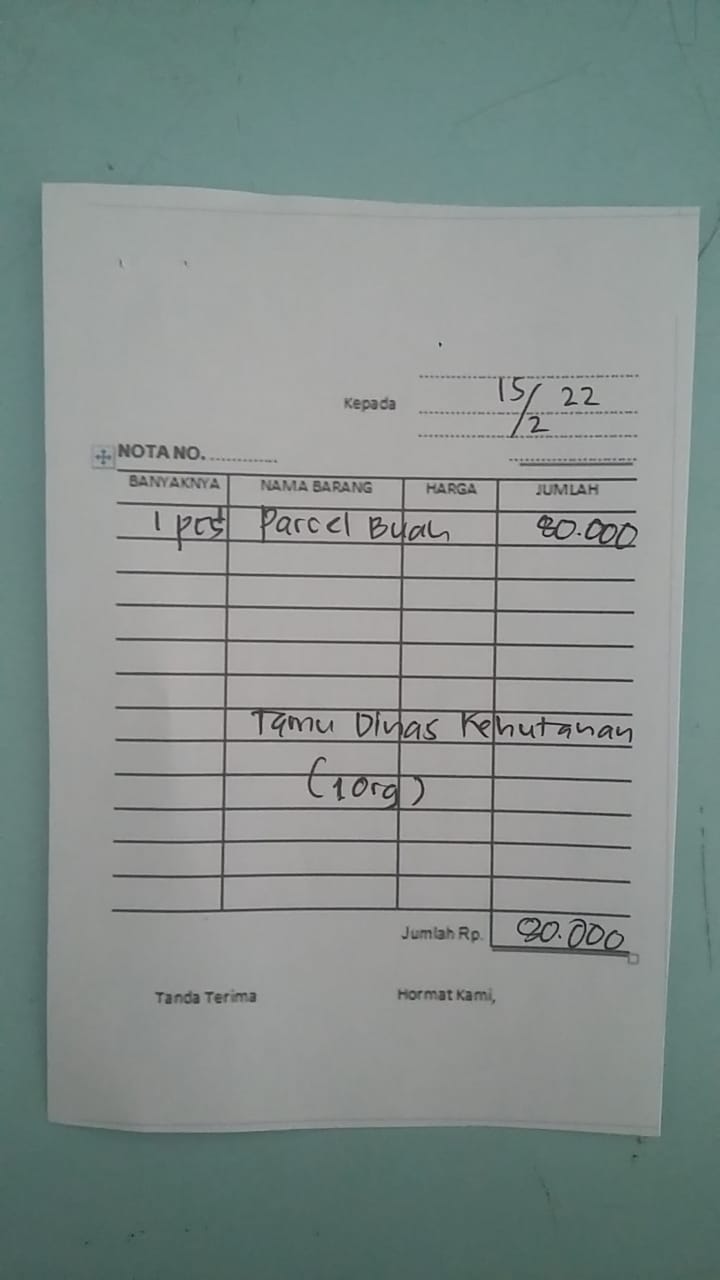 15/2 22
Kepada
NOTA NO. ..............
BANYAKNYA NAMA BARANG HARGA JUMLAH
1 pcs Parcel Buah 80.000
Tamu Dinas Kehutanan
(1 org)
Jumlah Rp. 80.000
Tanda Terima Hormat Kami,